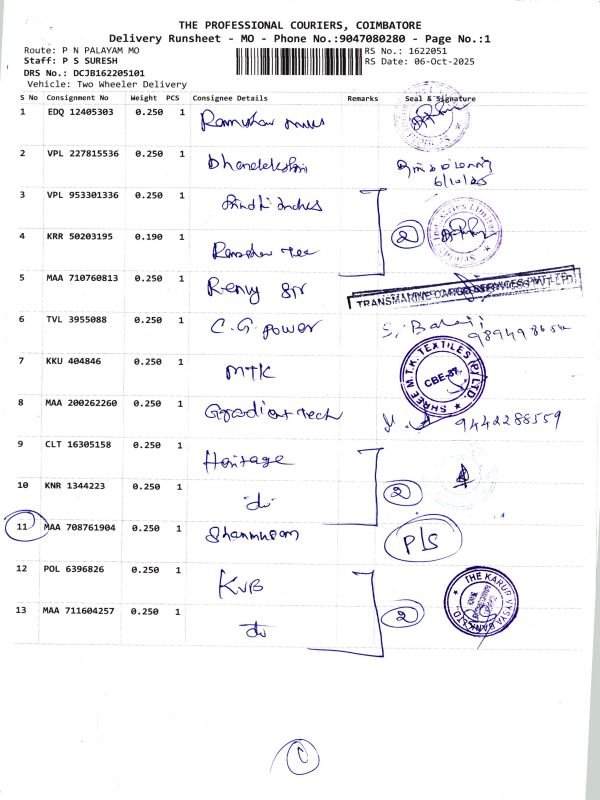 THE PROFESSIONAL COURIERS, COIMBATORE
Delivery Runsheet - MO - Phone No.:9047080280 - Page No.:1
Route: P N PALAYAM MO RS No.: 1622051
Staff: P S SURESH RS Date: 06-Oct-2025
DRS No.: DCJB162205101
Vehicle: Two Wheeler Delivery
S No Consignment No Weight PCS Consignee Details Remarks Seal & Signature
1 EDQ 12405303 0.250 1
2 VPL 227815536 0.250 1
6/10/25
3 VPL 953301336 0.250 1
4 KRR 50203195 0.190 1 2
5 MAA 710760813 0.250 1
TRANSMARINE CARGO SERVICES PVT LTD
6 TVL 3955088 0.250 1 C.G. power S. Balaji
7 KKU 404846 0.250 1 MTK SHREE M.T.K. TEXTILES (P) LTD. CBE-37.
8 MAA 200262260 0.250 1 9442288559
9 CLT 16305158 0.250 1 Heritage
10 KNR 1344223 0.250 1 do 2
11 MAA 708761904 0.250 1 P/S
12 POL 6396826 0.250 1 KVB THE KARUR VYSYA BANK LTD.
13 MAA 711604257 0.250 1 do 2
C